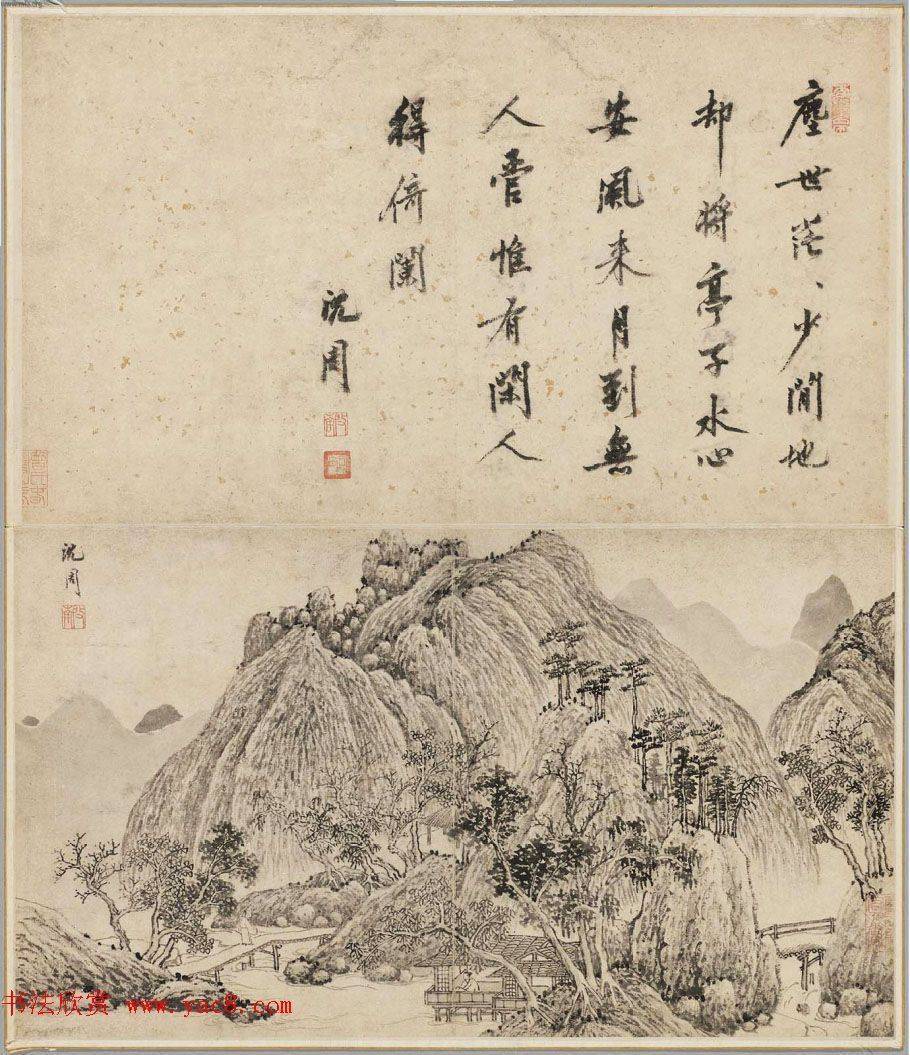 塵世茫、少閒地
却將亭子水心
安風来月到無
人管惟有閑人
得倚闌
沈周
沈周
书法欣赏 www.yac8.com